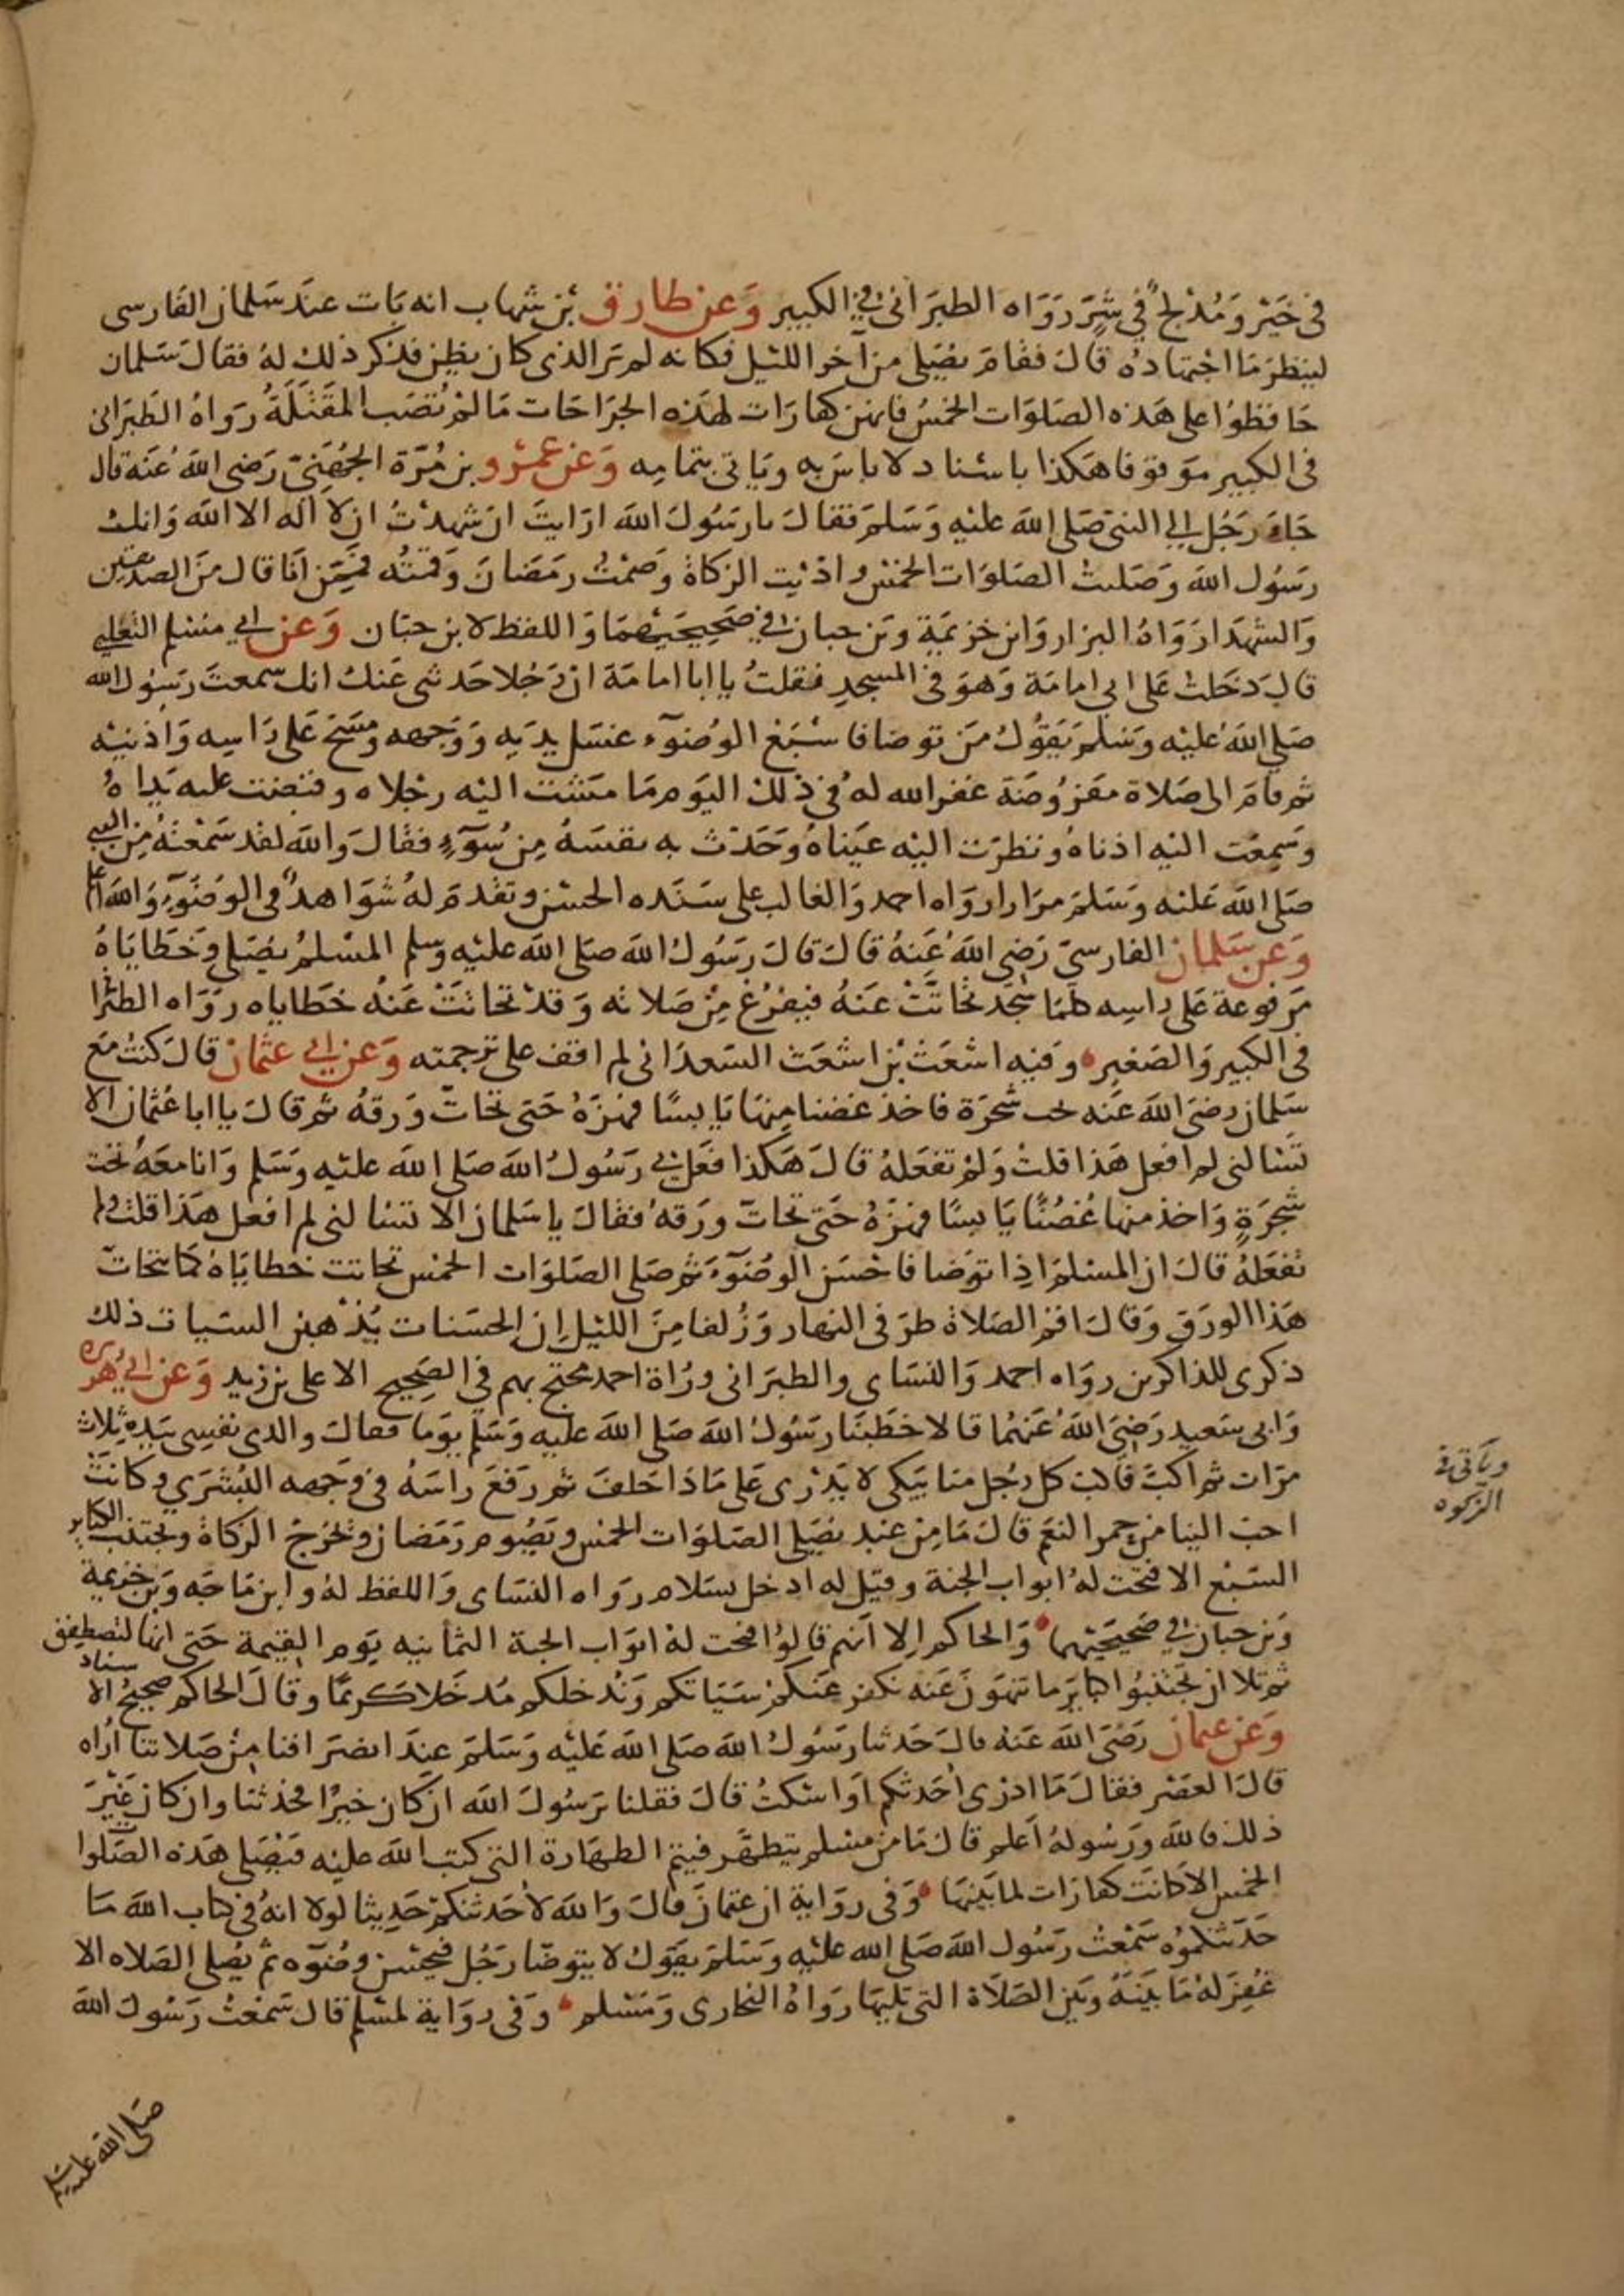 في خير ومُدْلج في شِرّ رَوَاه الطبَراني في الكبير وَعن طارق بن شهاب انه بَات عندَ سَلمان الفَارسي
لينظرَ مَا اجْتهَادهُ قالَ فقامَ يصَلي من آخر اللَيل فكانه لم يَر الذي كان يظن فذكر ذلك لهُ فقالَ سَلمان
حَافظوُا على هَذه الصَلوَات الخمسُ فانهن كفارَات لهَذه الجرَاحَات مَا لمْ تُصَب المقتَلَةُ رَواهُ الطبَراني
في الكبير موَقوفا هَكذا باسْناد لا باسَ به ويَاتي بتمامِه وَعَن عَمْرو بن مُرّة الجُهَنيّ رَضي اللهَ عَنه قال
جَاءَ رَجُل الي النبيّ صَلي اللهَ عليْه وَسَلمَ فقالَ يا رَسُولَ اللهَ ارَايتَ ان شهدْتُ ان لا اله الا الله وَانك
رسُول اللهَ وَصَليتُ الصَلوَات الخمْس واَدّيت الزكاةَ وصَمْتُ رمَضانَ وَقمتُه فمَمِن انَا قال منَ الصديقين
وَالشهدَا رَوَاهُ البزار وَابن خزيمَة وبَن حبان في صَحِيحَيْهمَا وَاللفظ لابن حبّان وَعَن ابي مسْلم التغلبي
قالَ دَخَلتُ عَلى ابي امامَة وَهوَ في المسجدِ فقلتُ يا ابا امامَةَ انّ رَجُلا حَدثني عَنكَ انك سمعتَ رَسُول الله
صَلي اللهَ عليْه وَسَلمَ يَقِوُلُ مَن توضا فاسْبَغَ الوضوْء غسَل يدَيه وَوَجههِ ومَسَحَ عَلى رَاسِه وَاذنيْه
ثم قامَ الى صَلاة مفرُوضَة غفر الله لهُ في ذلك اليَوم مَا مشَتْ اليْه رجْلاه وقبضت عليه يَداهُ
وسَمِعَت اليْه اذناهُ ونظرَت اليْه عيَناهُ وَحَدّث به نفسَهُ مِن سُوَءٍ فقالَ وَالله لقد سَمعْتهُ مِن النبي
صَلي اللهَ عَليْه وَسَلمَ مرَارا رَوَاه احمد وَالغالب على سَنَده الحسْن وتقدمَ لهُ شوَاهد في الوضُوَءِ وَاللهَ اعلم
وَعَن سَلمان الفارسيّ رَضي اللهَ عَنهُ قالَ قالَ رَسُولُ اللهَ صَلي اللهَ عليْه وَسلم المسْلمُ يصَلي وَخَطايَاهُ
مَرفوعة عَلى راسِه كلمَا سَجدَ تحَاتّتْ عَنهُ فيَفْرُغ مِنْ صَلاته وَقدْ تحَاتتَتْ عَنهُ خَطاياه رَوَاه الطبَرا
في الكبير وَالصَغير وَفيه اشعَثُ بن اشعَث السَعدَاني لم اقف على ترجمته وَعن ابي عثمانْ قالَ كنتُ معَ
سَلمان رضيَ اللهَ عَنه تحت شَجَرَة فاخذ غصْنا مِنهَا يَابسًا فهَزهُ حَتى تحَاتّ وَرقهُ ثم قالَ يا ابا عُثمان الا
تسَالني لِم افعل هَذا قلتُ وَلِمْ تفعَلهُ قالَ هَكذا فعَل بي رَسُولُ اللهَ صَلي اللهَ عليْه وَسَلم وَانا معَهُ تحت
شَجَرَةٍ وَاخذ منها غُصْنًا يَابسًا فهَزهُ حَتى تحَاتّ ورَقهُ فقالَ يا سَلمان الا تسَالني لم افعل هَذا قلتُ ولم
تفعَلهُ قالَ ان المسْلمَ اذِا توَضا فاحْسَن الوضُوءَ ثم صَلى الصَلوَات الخمْس تحَاتت خطايَاهُ كمَا يتحَاتّ
هَذا الورَق وَقالَ اقم الصَلاةَ طرَفي النهار وَزُلفا مِنَ الليْل إن الحسَنات يُذْهبن السَيات ذلك
ذكرى للذاكرين روَاه احمد وَالنسَاي والطبرَاني ورُاة احمد محتج بهم في الصَحِيح الا علي بن زيد وَعَن ابي هُريره
وَابي سَعيد رَضيَ اللهَ عَنهُما قالا خطَبنَا رَسُولُ اللهَ صَلي اللهَ عليه وَسَلم يوَما فقالَ والذي نفسِي بيَدِه ثلاث
مرّات ثم اكبّ فاكبّ كل رجُل منا يَبكي لا يَدْري عَلى مَاذا حَلفَ ثم رَفعَ راسَهُ في وَجهه البُشرَي وكانَتْ
احبّ الينا من حمر النعَم قالَ مَا مِن عَبد يصَلي الصَلوَات الخمس ويَصُوم رمَضان ويُخرجُ الزكاةَ ويجتنب الكباير
السَبْع الا فتحَت لهُ ابواب الجنة وقيَل له ادخل بسَلام روَاه النسَاي وَاللفظ لهُ وابن مَاجَه وَبن خزيمة
وَبن حبان في صَحيحَيْهما وَالحاكم إلا اَنهم قالوُا فتحت لهُ ابوَاب الجنة الثمانيه يَوم القيمة حَتى انها لتصطفق
ثم تلا ان تجَتَنبُوا كبايرَ ما تنهَونَ عَنه نكفر عَنكمْ سَيّاتكم وَندْخلكم مُدخَلا كَريمًا وقالَ الحاكم صَحِيحُ الاسناد
وَعَن عثمان رَضيَ اللهَ عَنهُ قالَ حَدثنا رَسُولُ اللهَ صَلي اللهَ عَليْه وَسَلمَ عندَ انصَرافنا مِنْ صَلاتنا اُرَاه
قالَ العصْر فقالَ مَا ادْري احَدثكم اوَ اسْكتُ قالَ فقلنا يَرَسُولَ اللهَ ان كان خيرًا فحَدثنا وان كان غيْرَ
ذلك فاللهَ ورَسُولهُ اَعلم قالَ مَا من مسْلم يتطهّر فيتم الطهَارة التي كتب اللهَ عليْه فيَصَلي هَذه الصَلوات
الخمس الا كانَت كفارَات لما بَينهَا وَفي روَاية ان عثمانَ قالَ وَاللهَ لاحَدثنكمْ حَدِيثا لولا انهُ في كتاب اللهَ مَا
حَدَثتكموُهُ سَمعْتُ رَسُول اللهَ صَلي الله عليْه وَسَلمَ يقوَلُ لا يتوضّا رَجُل فيُحسْن وضُوءه ثم يُصلي الصَلاه الا
غُفِرَ لهُ مَا بَينَهُ وبَين الصَلَاة التي تليهَا روَاهُ البخاري وَمسْلم وَفي روَاية لمسْلم قالَ سَمعْتُ رَسُولَ اللهَ
صَلي الله عليه وسلم
ويَاتي في
الزكوه